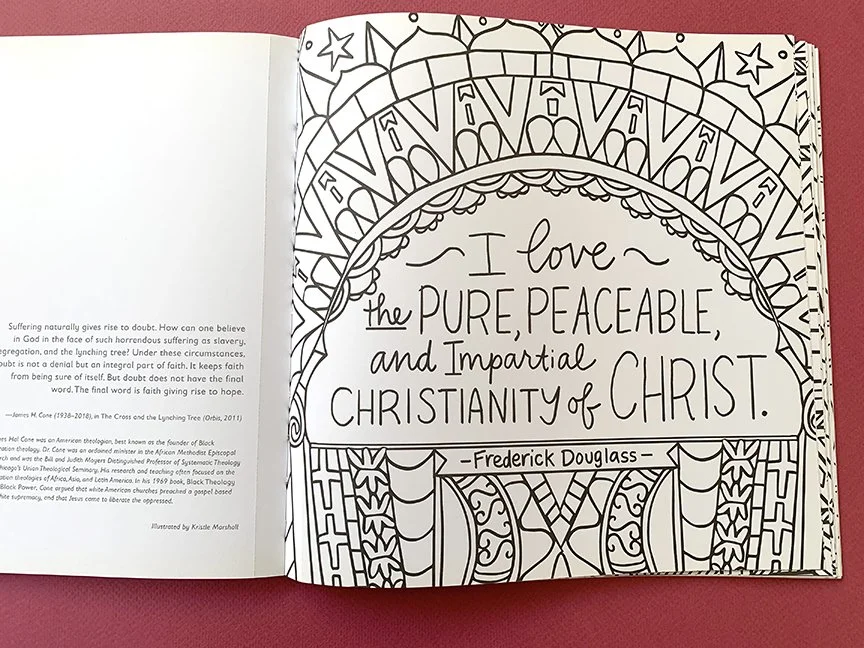 Suffering naturally gives rise to doubt. How can one believe
in God in the face of such horrendous suffering as slavery,
egregation, and the lynching tree? Under these circumstances,
oubt is not a denial but an integral part of faith. It keeps faith
from being sure of itself. But doubt does not have the final
word. The final word is faith giving rise to hope.
—James H. Cone (1938–2018), in The Cross and the Lynching Tree (Orbis, 2011)
es Hal Cone was an American theologian, best known as the founder of Black
ation theology. Dr. Cone was an ordained minister in the African Methodist Episcopal
rch and was the Bill and Judith Moyers Distinguished Professor of Systematic Theology
hicago's Union Theological Seminary. His research and teaching often focused on the
ation theologies of Africa, Asia, and Latin America. In his 1969 book, Black Theology
Black Power, Cone argued that white American churches preached a gospel based
hite supremacy, and that Jesus came to liberate the oppressed.
Illustrated by Kristle Marshall
~ I love ~
the PURE, PEACEABLE,
and Impartial
CHRISTIANITY of CHRIST.
—Frederick Douglass—